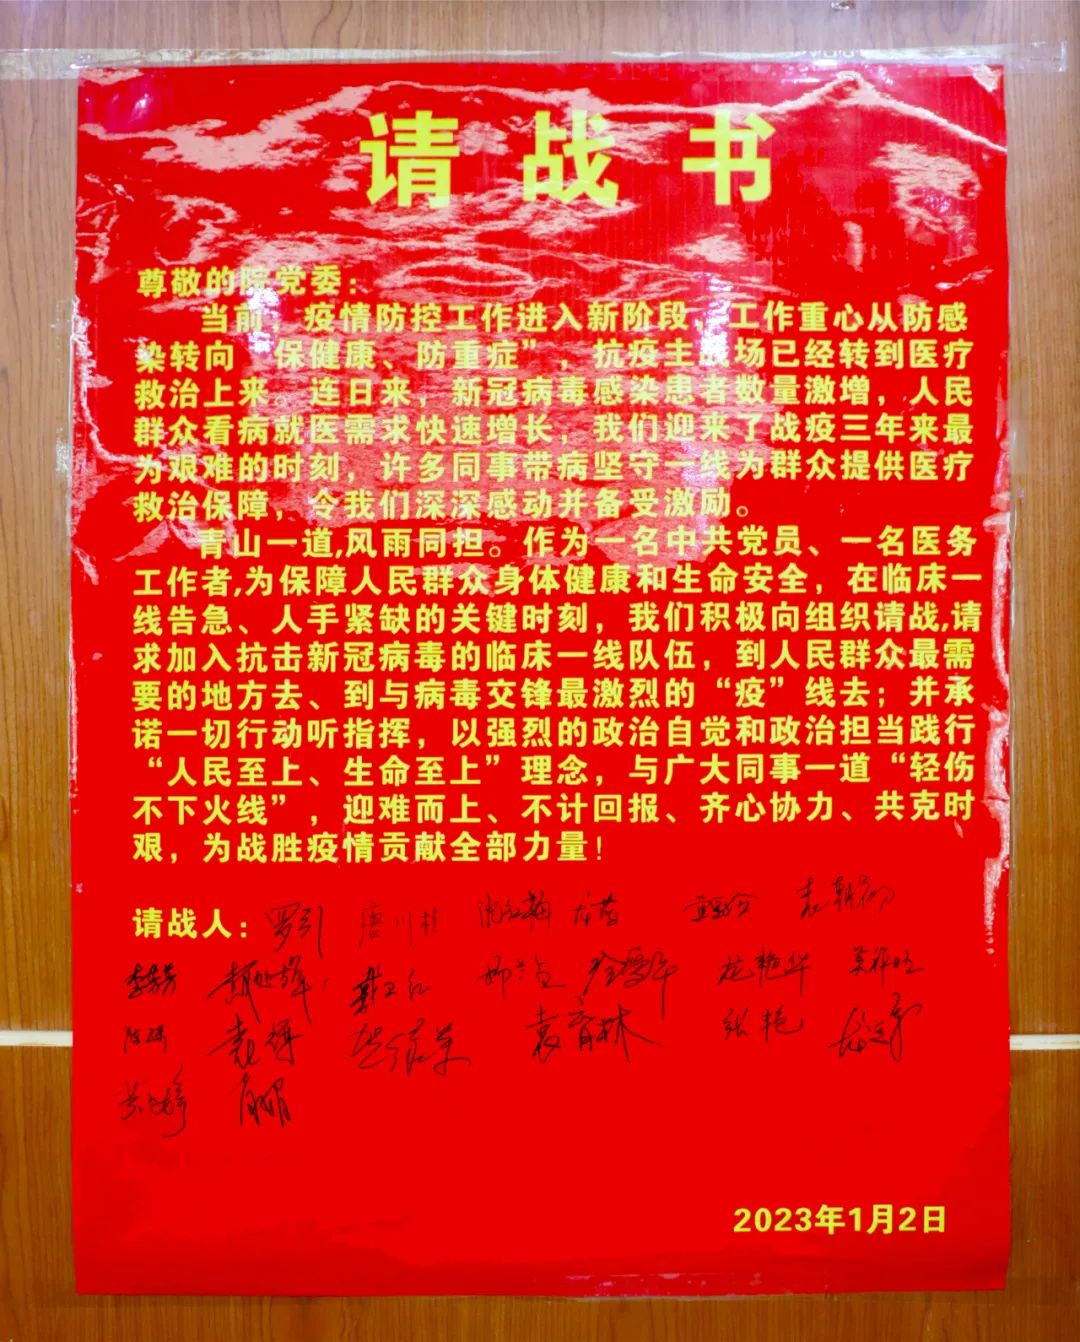 请战书
尊敬的院党委：
当前，疫情防控工作进入新阶段，工作重心从防感
染转向“保健康、防重症”，抗疫主战场已经转到医疗
救治上来。连日来，新冠病毒感染患者数量激增，人民
群众看病就医需求快速增长，我们迎来了战疫三年来最
为艰难的时刻，许多同事带病坚守一线为群众提供医疗
救治保障，令我们深深感动并备受激励。
青山一道,风雨同担。作为一名中共党员、一名医务
工作者,为保障人民群众身体健康和生命安全，在临床一
线告急、人手紧缺的关键时刻，我们积极向组织请战,请
求加入抗击新冠病毒的临床一线队伍，到人民群众最需
要的地方去、到与病毒交锋最激烈的“疫”线去；并承
诺一切行动听指挥，以强烈的政治自觉和政治担当践行
“人民至上、生命至上”理念，与广大同事一道“轻伤
不下火线”，迎难而上、不计回报、齐心协力、共克时
艰，为战胜疫情贡献全部力量！
请战人：罗引 唐川桂 沈红梅 袁朝初
龙艳华
袁辉 袁育林 张艳
2023年1月2日